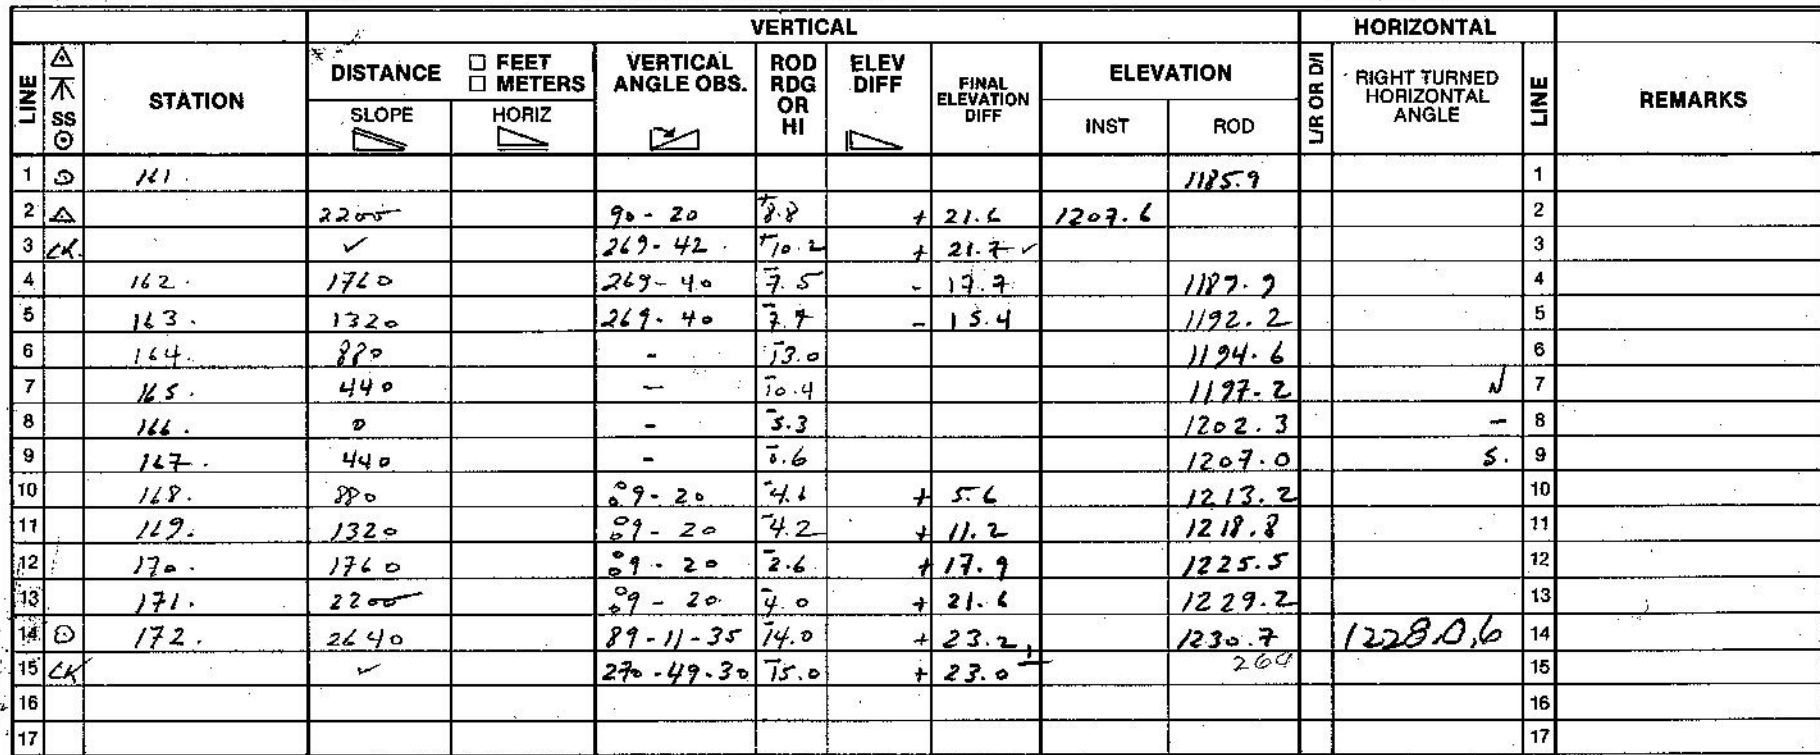 VERTICAL HORIZONTAL
LINE SS STATION DISTANCE □ FEET □ METERS SLOPE HORIZ VERTICAL ANGLE OBS. ROD RDG OR HI ELEV DIFF FINAL ELEVATION DIFF ELEVATION INST ROD L/R OR D/I RIGHT TURNED HORIZONTAL ANGLE LINE REMARKS
1 161. 1185.9 1
2 2200 90-20 +8.8 + 21.6 1207.6 2
3 CK. ✓ 269-42 +10.2 + 21.7 ✓ 3
4 162. 1760 269-40 -7.5 - 17.7 1189.9 4
5 163. 1320 269-40 -7.7 - 15.4 1192.2 5
6 164. 880 - -13.0 1194.6 6
7 165. 440 - -10.4 1197.2 N 7
8 166. 0 - -5.3 1202.3 - 8
9 167. 440 - -0.6 1207.0 S. 9
10 168. 880 89-20 -4.6 + 5.6 1213.2 10
11 169. 1320 89-20 -4.2 + 11.2 1218.8 11
12 170. 1760 89-20 -2.6 + 17.9 1225.5 12
13 171. 2200 89-20 -4.0 + 21.6 1229.2 13
14 172. 2640 89-11-35 -14.0 + 23.2 1230.7 1228.0,6 14
15 CK ✓ 270-49-30 -15.0 + 23.0 15
16
17 17